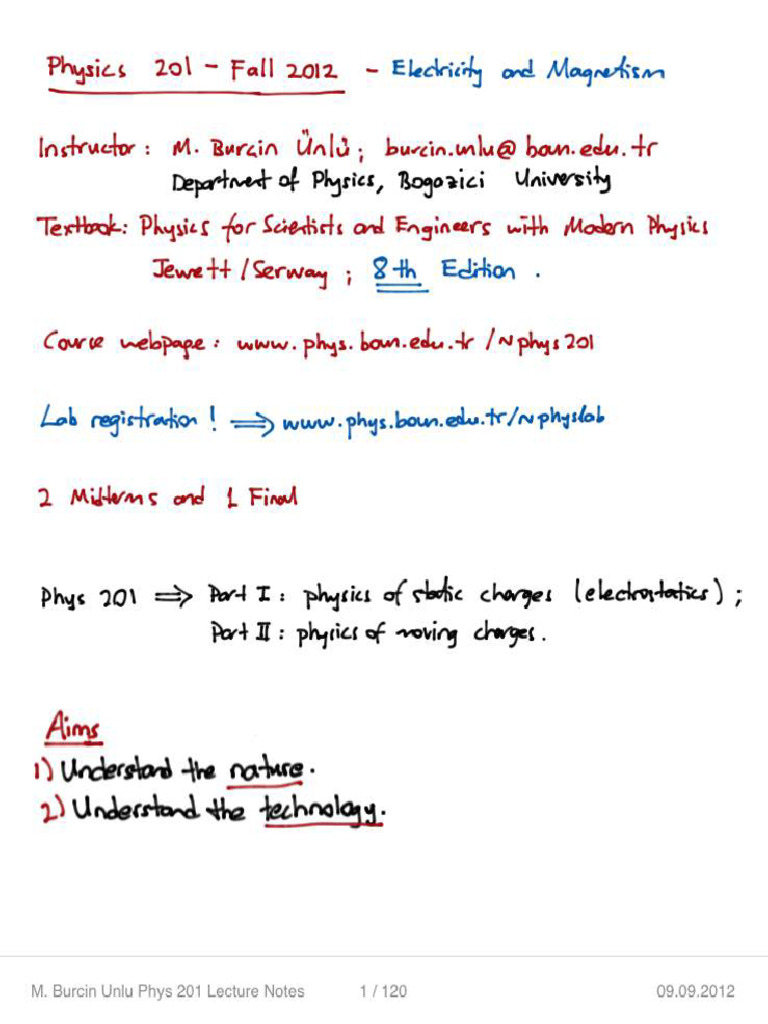 Physics 201 - Fall 2012 - Electricity and Magnetism
Instructor: M. Burcin Ünlü; burcin.unlu@boun.edu.tr
Department of Physics, Bogozici University
Textbook: Physics for Scientists and Engineers with Modern Physics
Jewett / Serway; 8th Edition.
Course webpage: www.phys.boun.edu.tr/~phys201
Lab registration! ⟹ www.phys.boun.edu.tr/~physlab
2 Midterms and 1 Final
Phys 201 ⟹ Part I: physics of static charges (electrostatics);
Part II: physics of moving charges.
Aims
1) Understand the nature.
2) Understand the technology.
M. Burcin Unlu Phys 201 Lecture Notes 1 / 120 09.09.2012